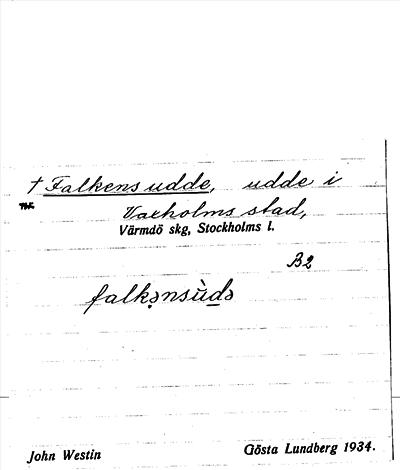 † Falkens udde, udde i
Vaxholms stad,
Värmdö skg, Stockholms l.
B2
falkənsùdə
John Westin
Gösta Lundberg 1934.